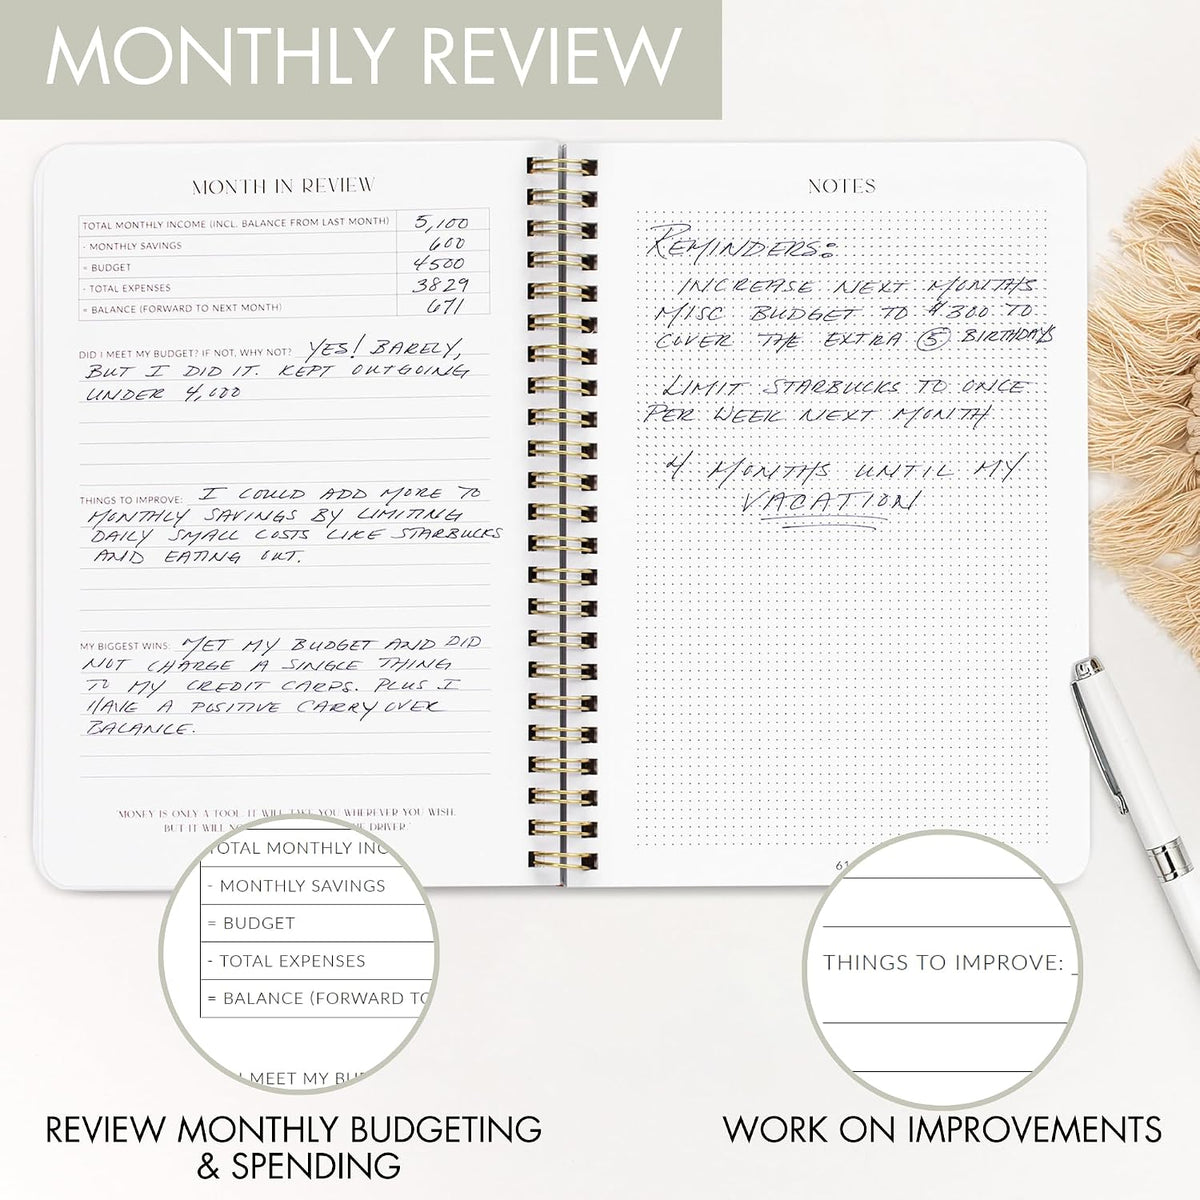 MONTHLY REVIEW
MONTH IN REVIEW
TOTAL MONTHLY INCOME (INCL. BALANCE FROM LAST MONTH) 5,100
- MONTHLY SAVINGS 600
= BUDGET 4500
- TOTAL EXPENSES 3829
= BALANCE (FORWARD TO NEXT MONTH) 671
DID I MEET MY BUDGET? IF NOT, WHY NOT? YES! BARELY,
BUT I DID IT. KEPT OUTGOING
UNDER 4,000
THINGS TO IMPROVE: I COULD ADD MORE TO
MONTHLY SAVINGS BY LIMITING
DAILY SMALL COSTS LIKE STARBUCKS
AND EATING OUT.
MY BIGGEST WINS: MET MY BUDGET AND DID
NOT CHARGE A SINGLE THING
TO MY CREDIT CARDS. PLUS I
HAVE A POSITIVE CARRY OVER
BALANCE.
"MONEY IS ONLY A TOOL. IT WILL TAKE YOU WHEREVER YOU WISH,
BUT IT WILL DRIVER."
NOTES
REMINDERS:
INCREASE NEXT MONTHS
MISC BUDGET TO $300 TO
COVER THE EXTRA 5 BIRTHDAYS
LIMIT STARBUCKS TO ONCE
PER WEEK NEXT MONTH
4 MONTHS UNTIL MY
VACATION
61
TOTAL MONTHLY INC
- MONTHLY SAVINGS
= BUDGET
- TOTAL EXPENSES
= BALANCE (FORWARD TO
MEET MY BU
THINGS TO IMPROVE:
REVIEW MONTHLY BUDGETING
& SPENDING
WORK ON IMPROVEMENTS